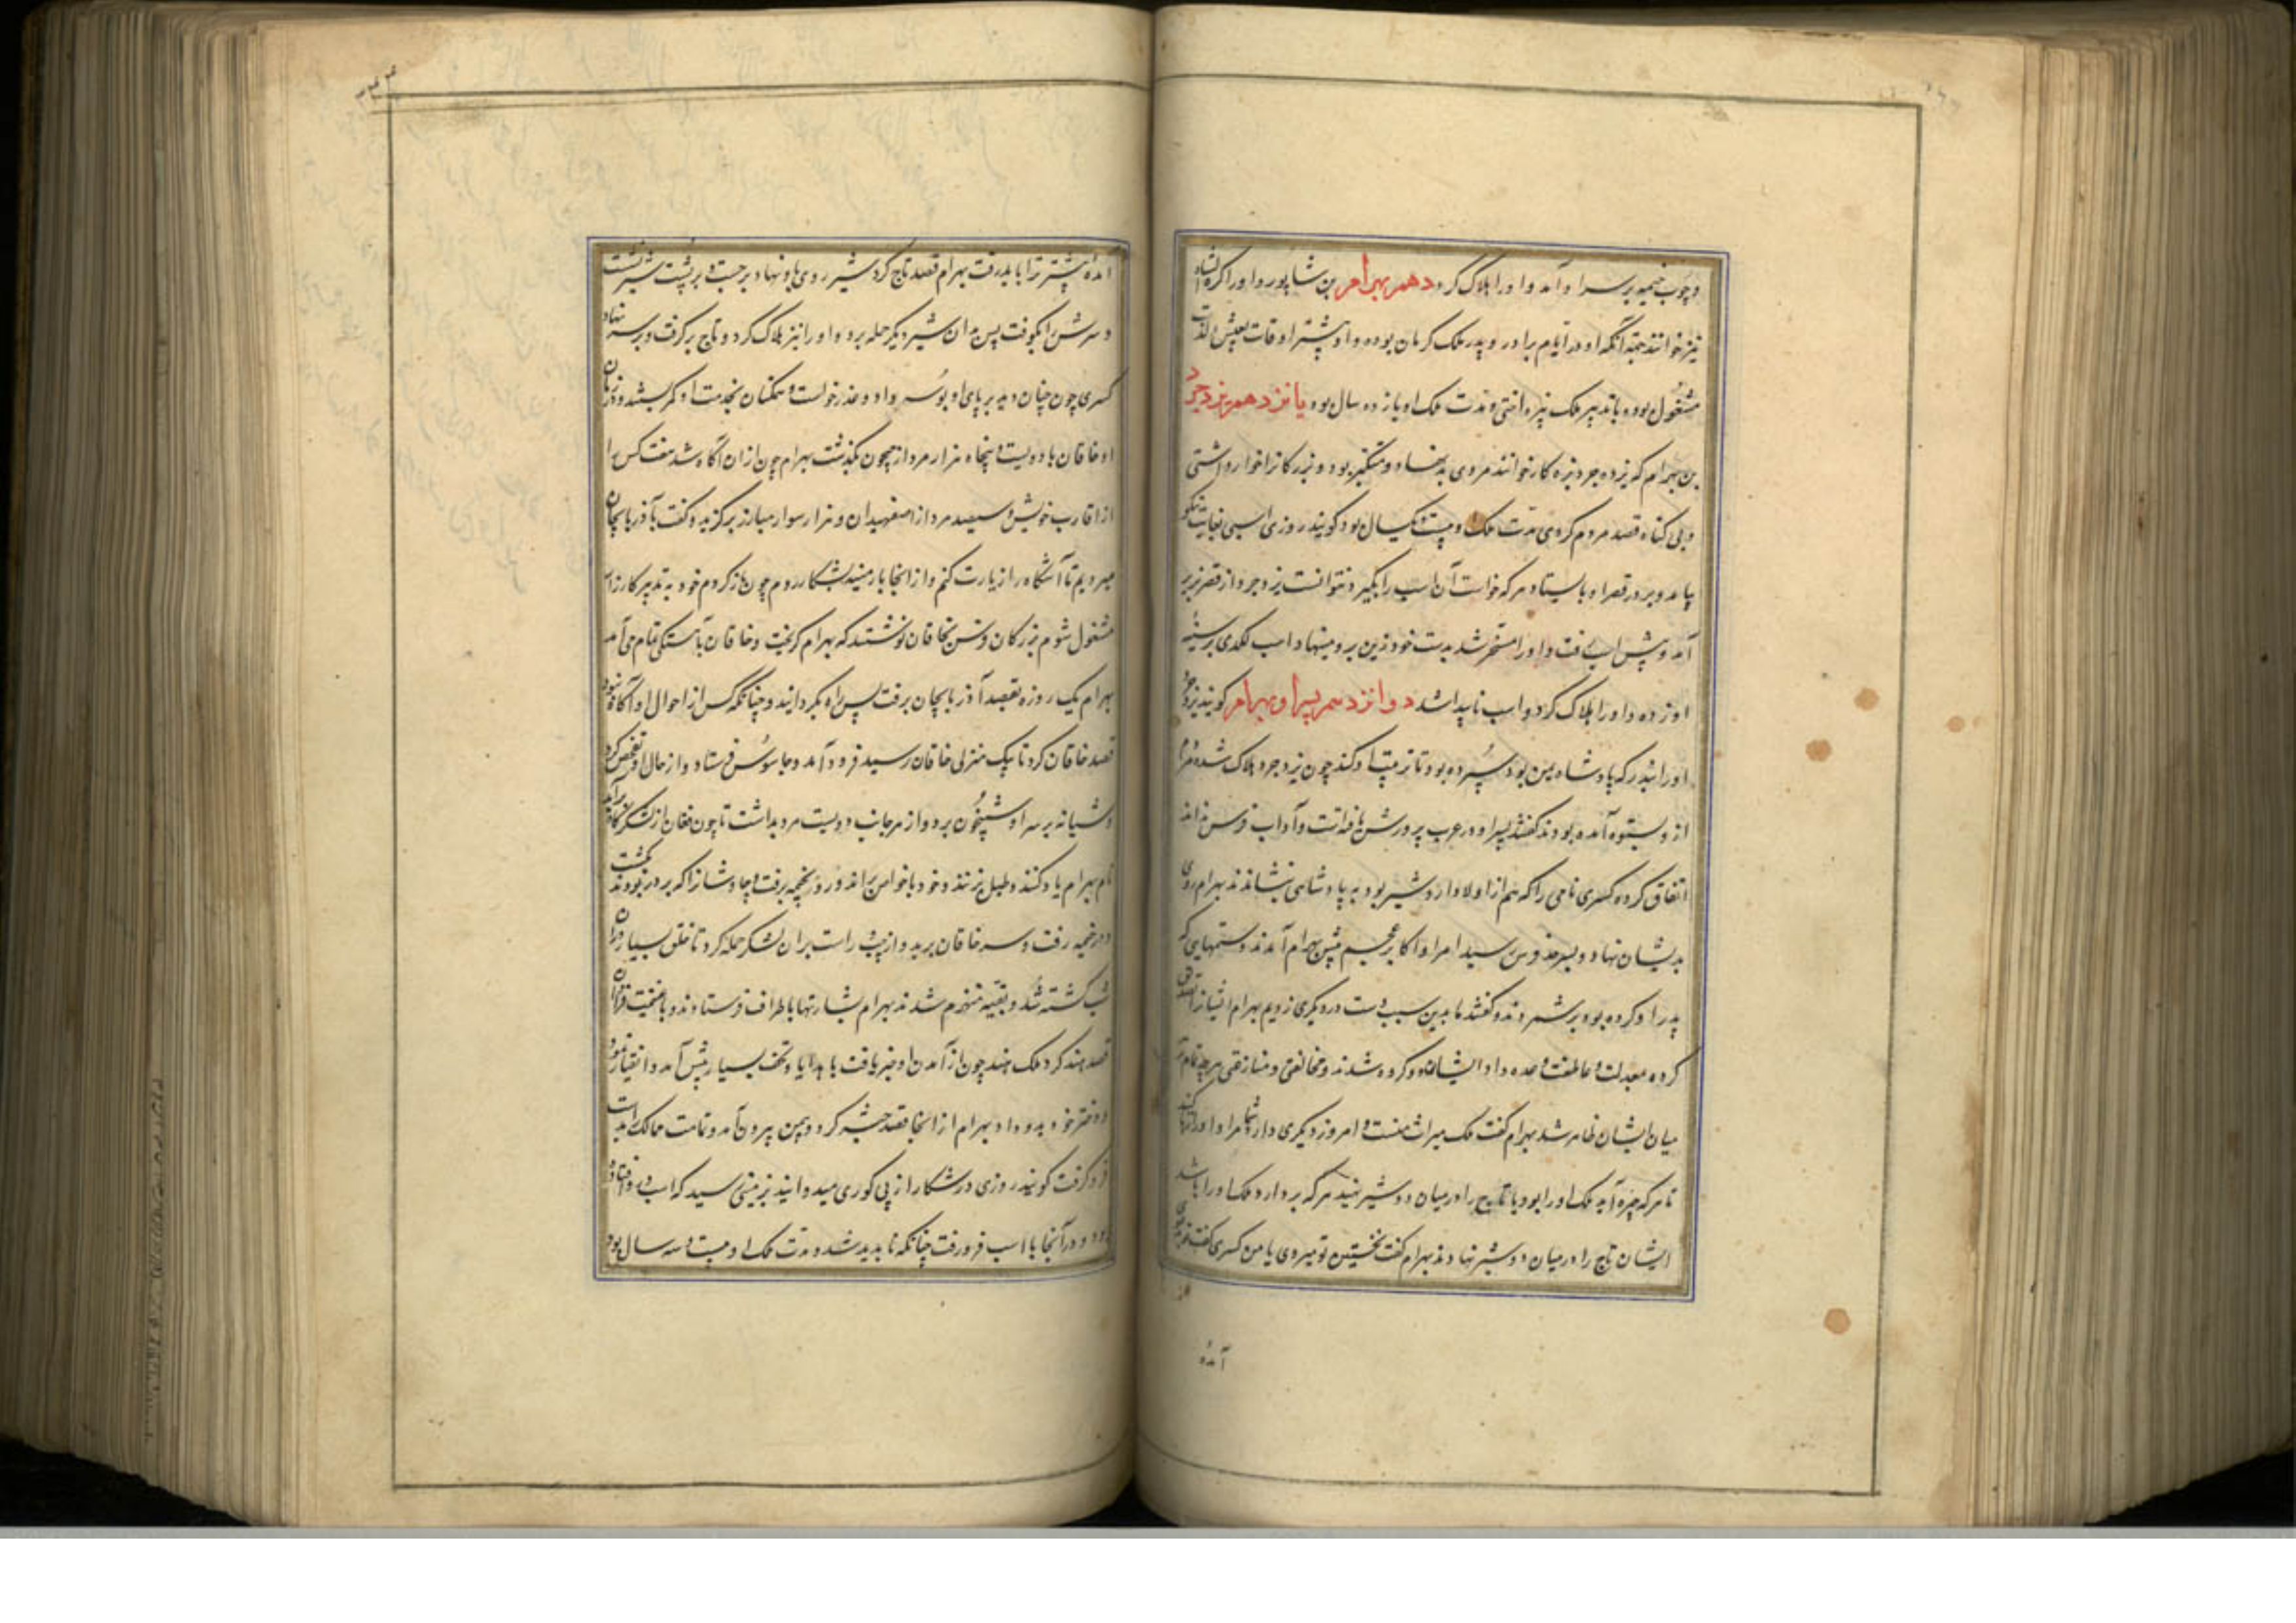 و چوب خیمه بر سر او آمد و او را هلاک کرد دهم بهرام بن شاپور و او را کرمانشاه
نیز خوانند جهة آنکه او در ایام برادر و پدر ملک کرمان بوده و او بیشتر اوقات بعیش و لذت
مشغول بوده بتدبیر ملک نپرداختی و مدت ملک او یازده سال بود یازدهم یزدجرد
بن بهرام که یزدجرد بزه کار خوانند مردی بد نهاد و متکبر بود و بزرکانرا خوار داشتی
و بی کناه قصد مردم کردی مدت ملک او بیست و یکسال بود کویند روزی اسبی بغایت نیکو
بیامد و بر در قصر او بایستاد هر که خواست آن اسب را بگیرد نتوانست یزدجرد از قصر بزیر
آمد و پیش اسب رفت و او را مسخر شد بدست خود زین برو مینهاد اسب لکدی بر سینه
او زده و او را هلاک کرد و اسب ناپدا شد دوانزدهم پسر او بهرام کویند یزدجرد
او را بمنذر که پادشاه یمن بود سپرده بود تا تربیت او کند چون یزدجرد هلاک شد مردم
ازو بستوه آمده بودند کفتند پسر او در عرب پرورش یافته است و آداب فرس نداند
اتفاق کرده کسری نامی را که هم از اولاد اردشیر بود به پادشاهی بنشاندند بهرام روی
بدیشان نهاد و بسرحد فرس رسید امرا و اکابر عجم پیش بهرام آمدند و ستمهایی که
پدر او کرده بود بر شمردند و کفتند ما بدین سبب دست در دیکری زدیم بهرام ایشانرا تصدیق
کرده معدلت و عاطفت وعده داد ایشان دو کروه شدند و مخالفتی و منازعتی هر چه تمامتر
میان ایشان ظاهر شد بهرام کفت ملک میراث منست و امروز دیکری دارد شما مرا و او را
تا هر که چیره آید ملک او را بود یا تاج را در میان دو شیر نهید هر که بردارد ملک او را باشد
ایشان تاج را در میان دو شیر نهادند بهرام کفت نخستین تو میروی یا من کسری کفت
آمدهٔ
آمدهٔ پیشتر ترا باید رفت بهرام قصد تاج کرد شیر روی باو نهاد بر جست و بر پشت شیر نشست
و سرش را بکوفت پس بدان شیر دیکر حمله برد و او را نیز هلاک کرد و تاج بر کرفت و بر سر نهاد
کسری چون چنان دید بر پای او بوسه داد و عذر خواست و همکنان بخدمت او کمر بستند و در زمان
او خاقان با دویست و پنجاه هزار مرد از جیحون بگذشت بهرام چون ازان آکاه شد هفت کس را
از اقارب خویش و سیصد مرد از اصفهبدان و هزار سوار مبارز برکزید و کفت بآذربایجان
میرویم تا آتشکاه را زیارت کنم و از انجا بارمنیه بشکار روم چون بازکردم خود به تدبیر کارزار
مشغول شوم بزرکان فرس بخاقان نوشتند که بهرام کریخت و خاقان بآهستکی تمام می آمد
بهرام یک روزه بقصد آذربایجان برفت پس راه بکردانید و چنانکه کس از احوال او آکاه نبود
قصد خاقان کرد تا بیک منزلی خاقان رسید فرود آمد و جاسوس فرستاد و از حال او تفحص کرد
و شبانه بر سر او شبیخون برد و از هر جانب دویست مرد بداشت تا چون فغان از لشکر برآید
نام بهرام یاد کنند و طبل بزنند و خود با خواص براند و در خیمه رفت و چاوشانرا که بر در بودند بکشت
و در خیمه رفت و سر خاقان برید و از پشت راست بران لشکر حمله کرد تا خلق بسیار دران
شب کشته شد و بقیه منهزم شدند بهرام بشارتها باطراف فرستادند و با غنیمت فراوان
قصد هند کرد ملک هند چون از آمدن او خبر یافت با هدایا و تحف بسیار پیش آمد و انقیاد نمود
و دختر خود بدو داد بهرام از انجا قصد حبشه کرد و بیمن بیرون آمد و تمامت ممالک
فرو کرفت کویند روزی در شکار از پی کوری میدوانید بزمینی رسید که آب درو افتاده
بود و در آنجا با اسب فرو رفت چنانکه ناپدید شد و مدت ملک او بیست و سه سال بود